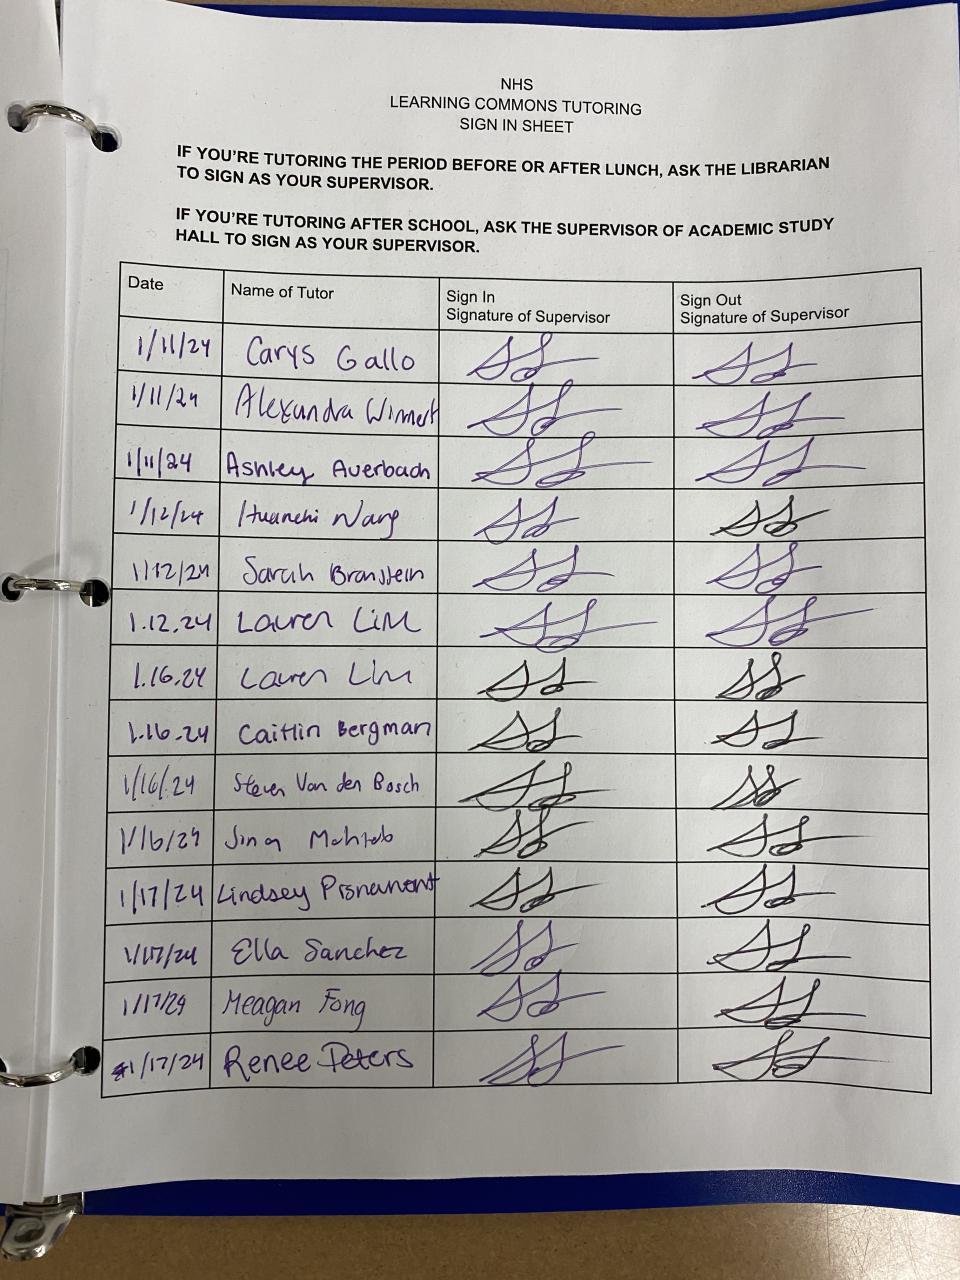 NHS
LEARNING COMMONS TUTORING
SIGN IN SHEET
IF YOU'RE TUTORING THE PERIOD BEFORE OR AFTER LUNCH, ASK THE LIBRARIAN
TO SIGN AS YOUR SUPERVISOR.
IF YOU'RE TUTORING AFTER SCHOOL, ASK THE SUPERVISOR OF ACADEMIC STUDY
HALL TO SIGN AS YOUR SUPERVISOR.
Date Name of Tutor Sign In Sign Out
Signature of Supervisor Signature of Supervisor
1/11/24 Carys Gallo
1/11/24 Alexandra
1/11/24 Ashley Auerbach
1/12/24 Huanchi Wang
1/12/24 Sarah Bronstein
1.12.24 Lauren Lim
1.16.24 Lauren Lim
1.16.24 Caitlin Bergman
1/16/24 Steven Van den Bosch
1/16/24 Jina Mahtab
1/17/24 Lindsey
1/17/24 Ella Sanchez
1/17/24 Meagan Fong
1/17/24 Renee Peters